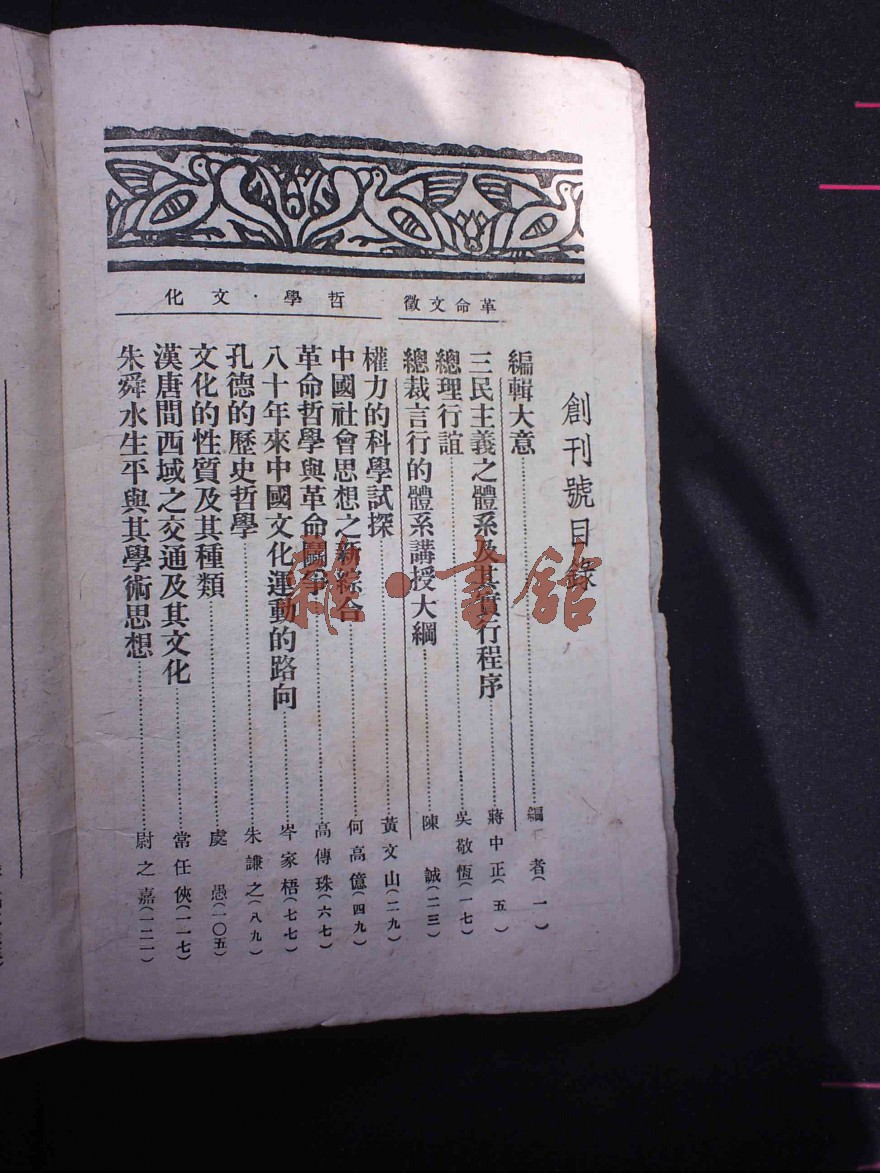 創刊號目錄
革命文徵
編輯大意 編者(一)
三民主義之體系及其實行程序 蔣中正(五)
總理行誼 吳敬恆(一七)
總裁言行的體系講授大綱 陳誠(二三)
哲學·文化
權力的科學試探 黃文山(二九)
中國社會思想之新綜合 何高億(四九)
革命哲學與革命鬭爭 高傳珠(六七)
八十年來中國文化運動的路向 岑家梧(七七)
孔德的歷史哲學 朱謙之(八九)
文化的性質及其種類 虞愚(一〇五)
漢唐間西域之交通及其文化 常任俠(一一七)
朱舜水生平與其學術思想 尉之嘉(一二一)
雜·書館